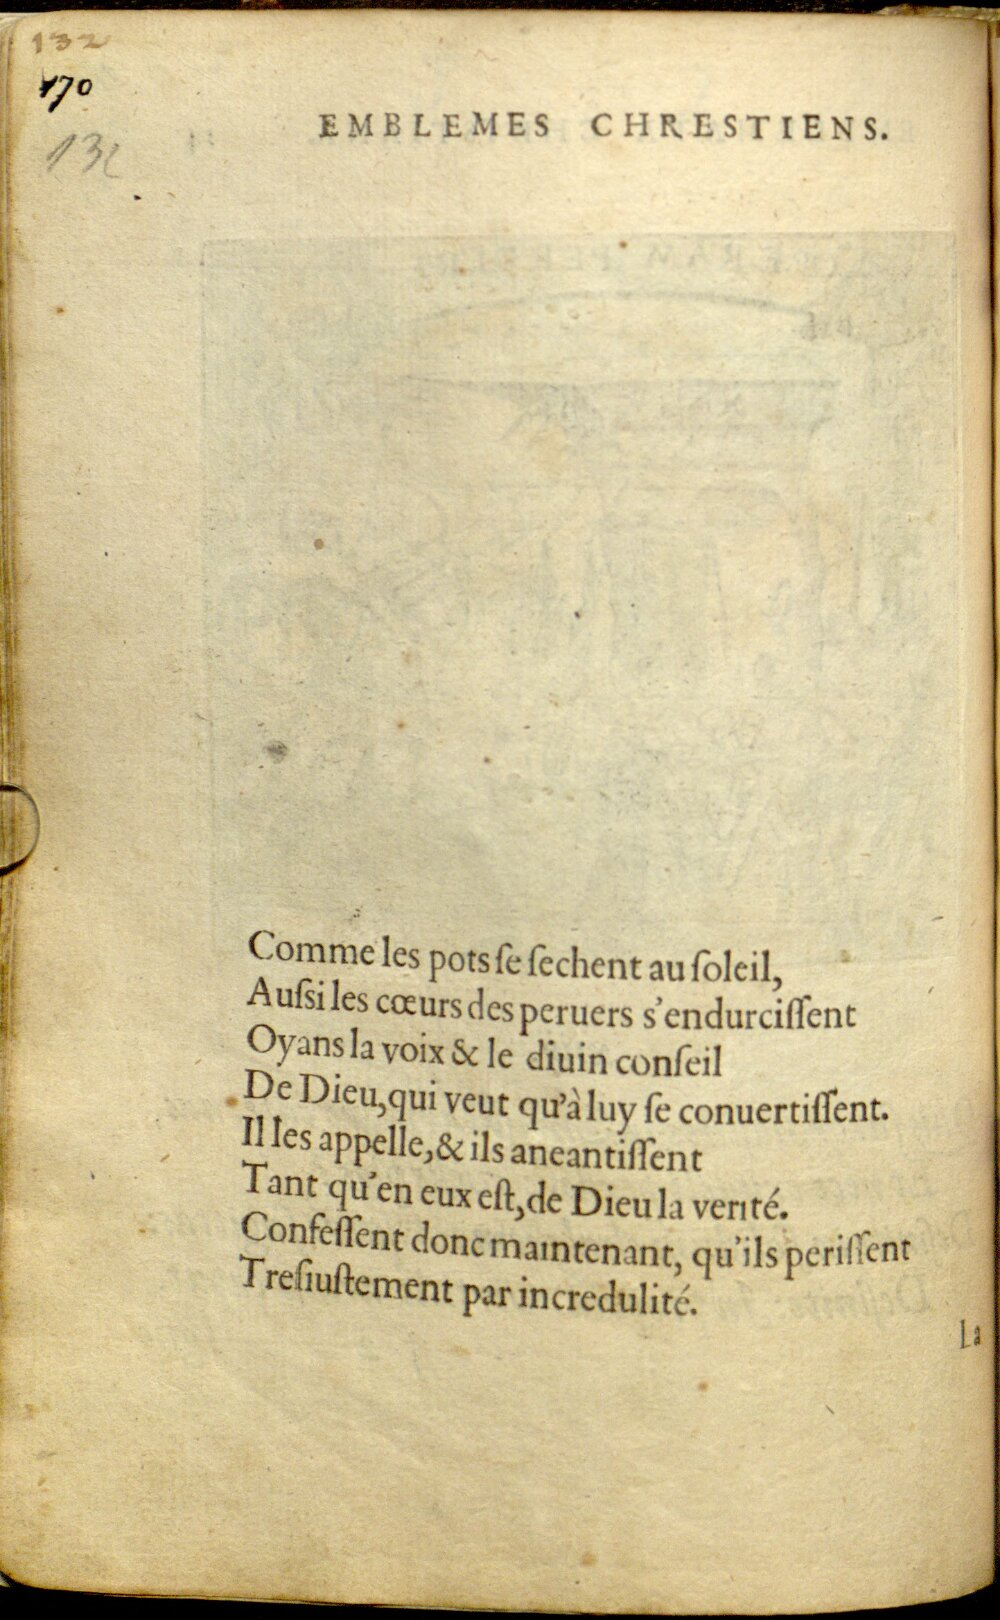 132
170
132
EMBLEMES CHRESTIENS.
Comme les pots se sechent au soleil,
Aussi les cœurs des peruers s'endurcissent
Oyans la voix & le diuin conseil
De Dieu, qui veut qu'à luy se conuertissent.
Il les appelle, & ils aneantissent
Tant qu'en eux est, de Dieu la verité.
Confessent donc maintenant, qu'ils perissent
Tresiustement par incredulité.
La